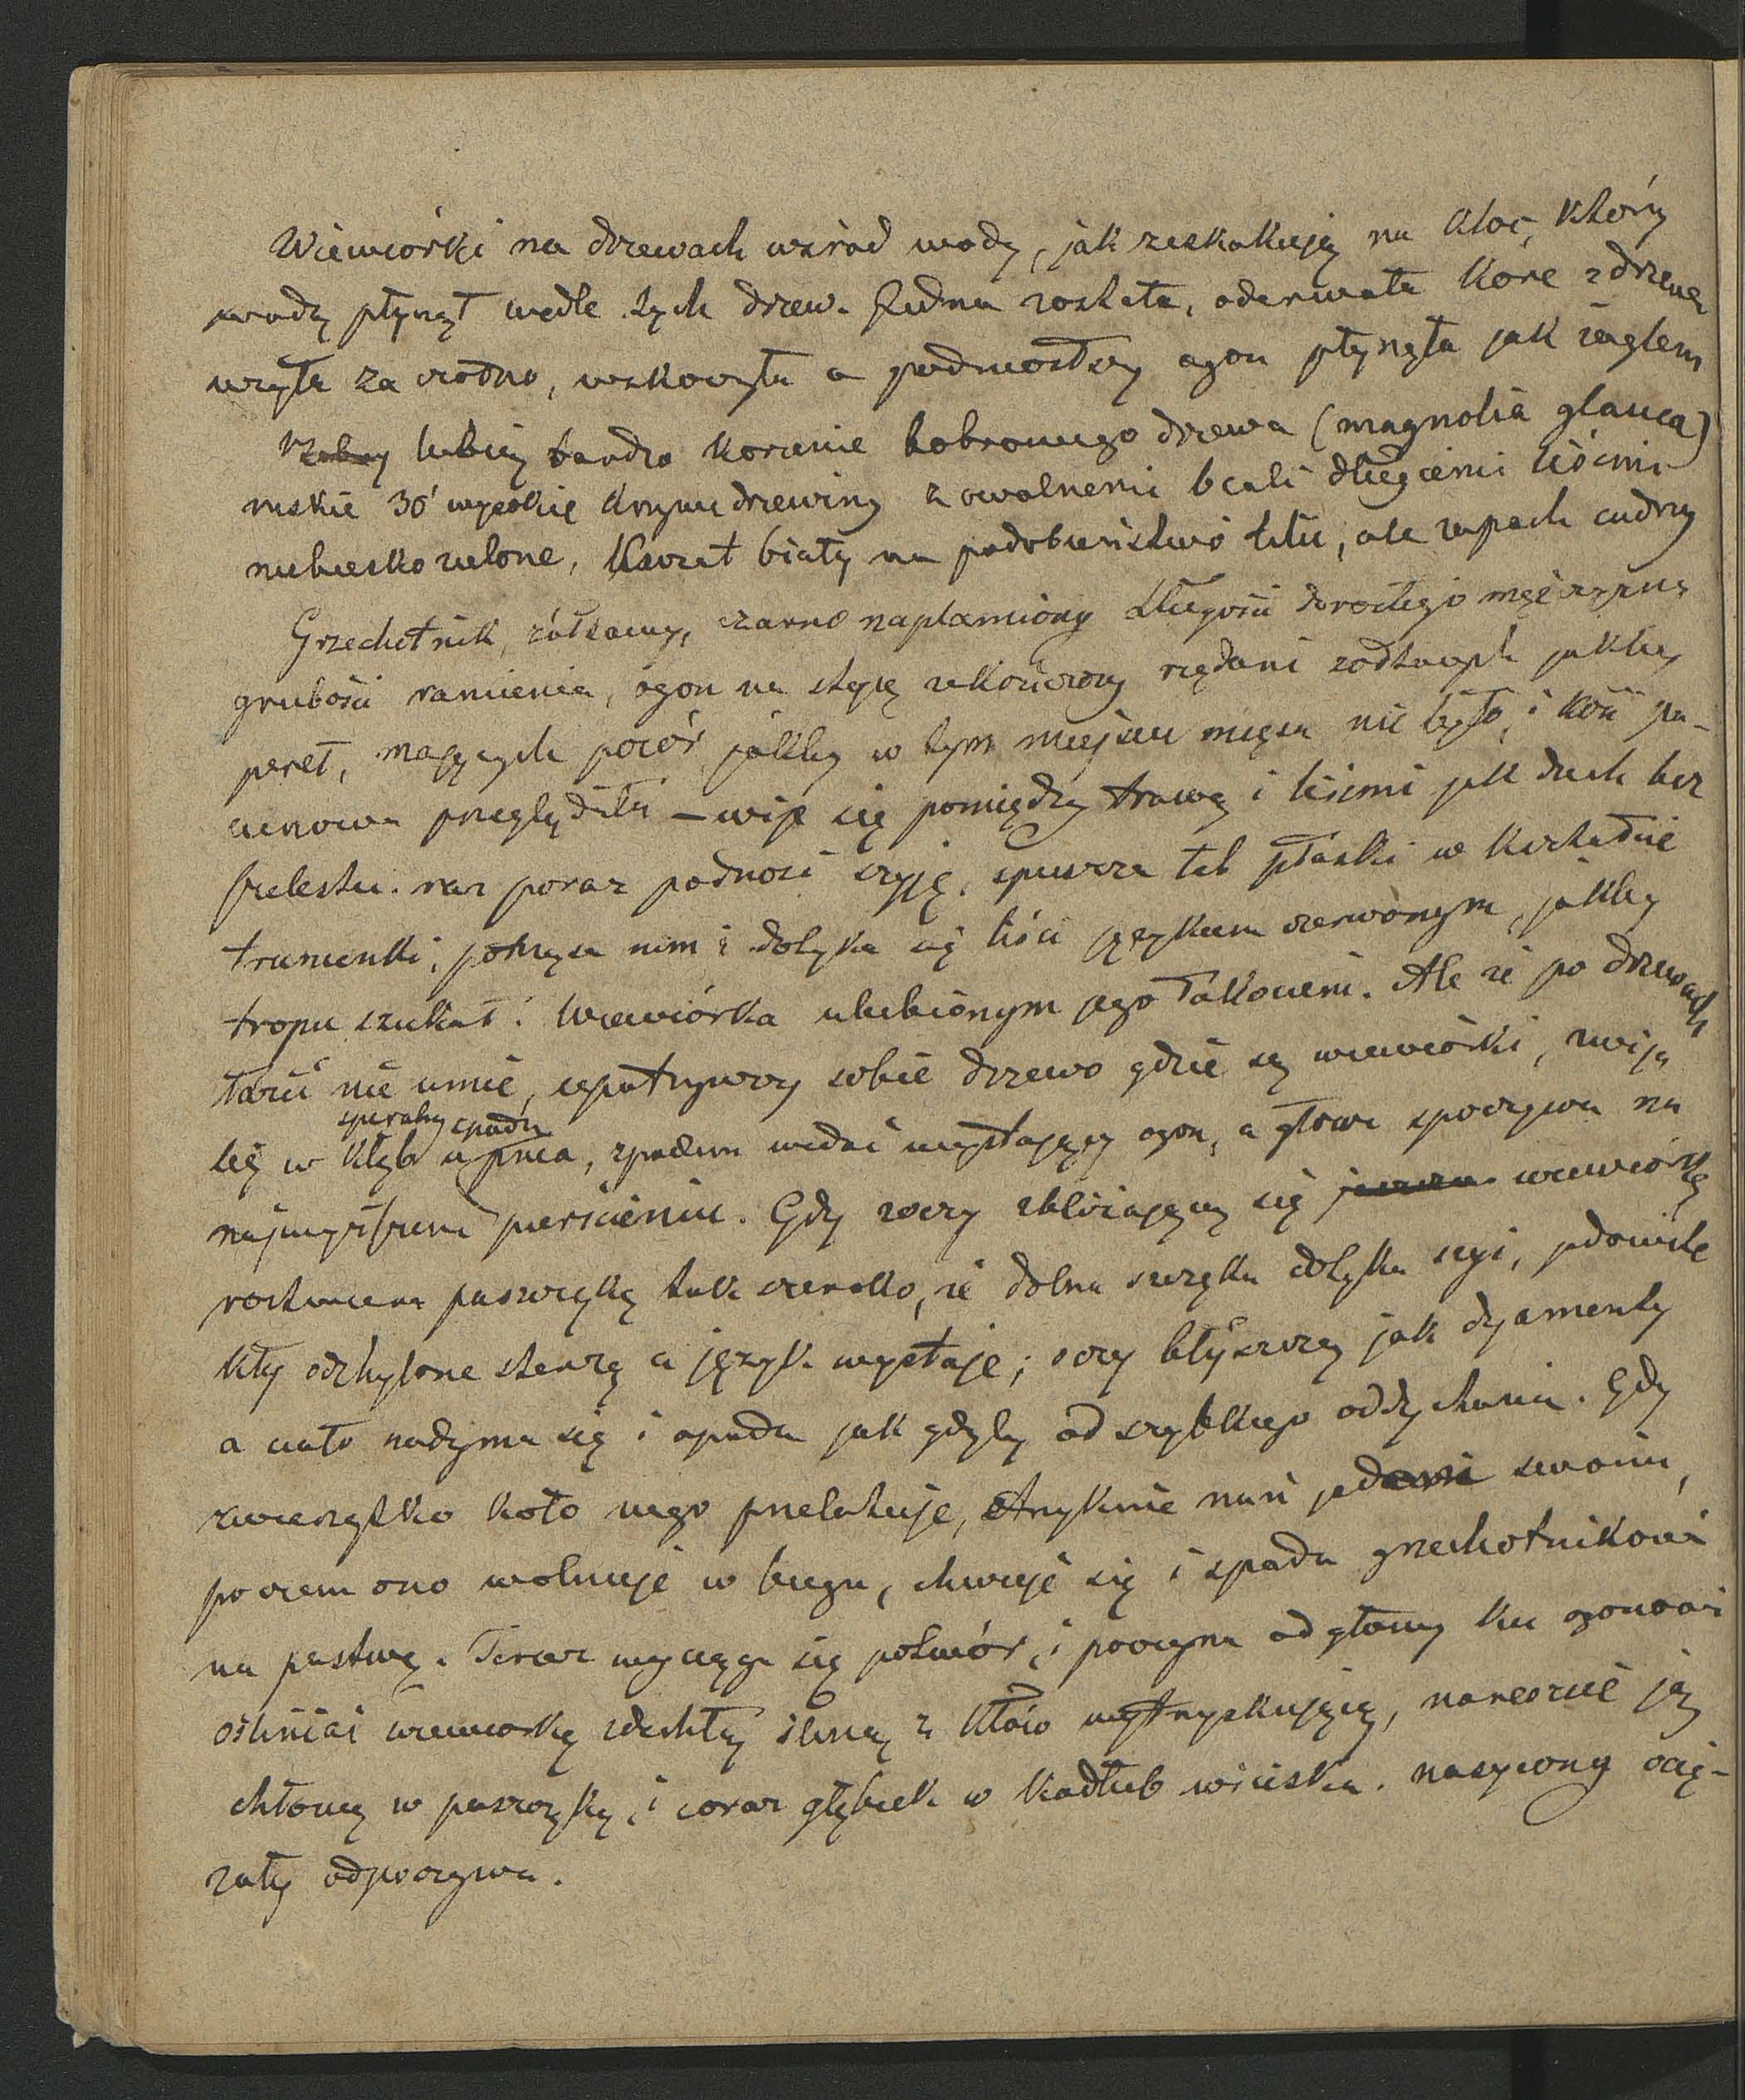 Wiewiórki na drzewach wsród wody, jak zeskakują na kloc, który
wodą płynął wedle tych drzew. Jedna została, oderwała korę z drzewa
wzięła za czółno, wskoczyła a podniósłszy ogon płynęła jak żaglem
lubią bardzo korzenie bobrowego drzewa (magnolia glauca)
niskie 30' wysokie krzywe drzewiny z owalnemi 6 cali długiemi liśćmi
niebiesko zielone, kwiat biały na podobieństwo lilii, ale zapach cudny
Grzechotnik, żółtawy, czarno naplamiony długości dorosłego mężczyzny
grubości ramienia, ogon na stopę zakończony rzędami rodzaych jakby
pereł, mających pozór jakby w tym miejscu mięsa nie było, i kość pa-
cierzowa przeglądała – wije się pomiędzy trawą i liśćmi jak duch bez
szelestu. raz poraz podnosi szyję, spuszcza łeb płaski w kształcie
trumienki, potrząsa nim i dotyka się liści językiem czerwonym, jakby
tropu szukał. Wiewiórka ulubionym jego łakociem. Ale że po drzewach
łazić nie umie, upatrzywszy sobie drzewo gdzie są wiewiórki, zwija
spiralny spodu
się w kłąb u pnia, spodem widać wystający ogon, a głowa spoczywa na
najwyższem pierścieniu. Gdy zoczy zbliżającą się wiewiórkę
roztwiera paszczękę tak szeroko, że dolna szczęka dotyka szyi, jadowite
kły odchylone sterczą a język wystaje; oczy błyszczą jak dyamenty
a ciało nadyma się i opada jak gdyby od szybkiego oddychania. Gdy
zwierzątko koło niego przelatuje, strzyknie nań jadem swoim,
poczem ono wolnieje w biegu, chwieje się i spada grzechotnikowi
na pastwę. Teraz wyciąga się potwór, i poczyna od głowy ku ogonowi
oślniać wiewiórkę zdechłą śliną z kłów wytryskującą, nareszcie ją
chłonie w paszczękę, i coraz głębiek w kadłub wciska. nasycony ocię-
żały odpoczywa.